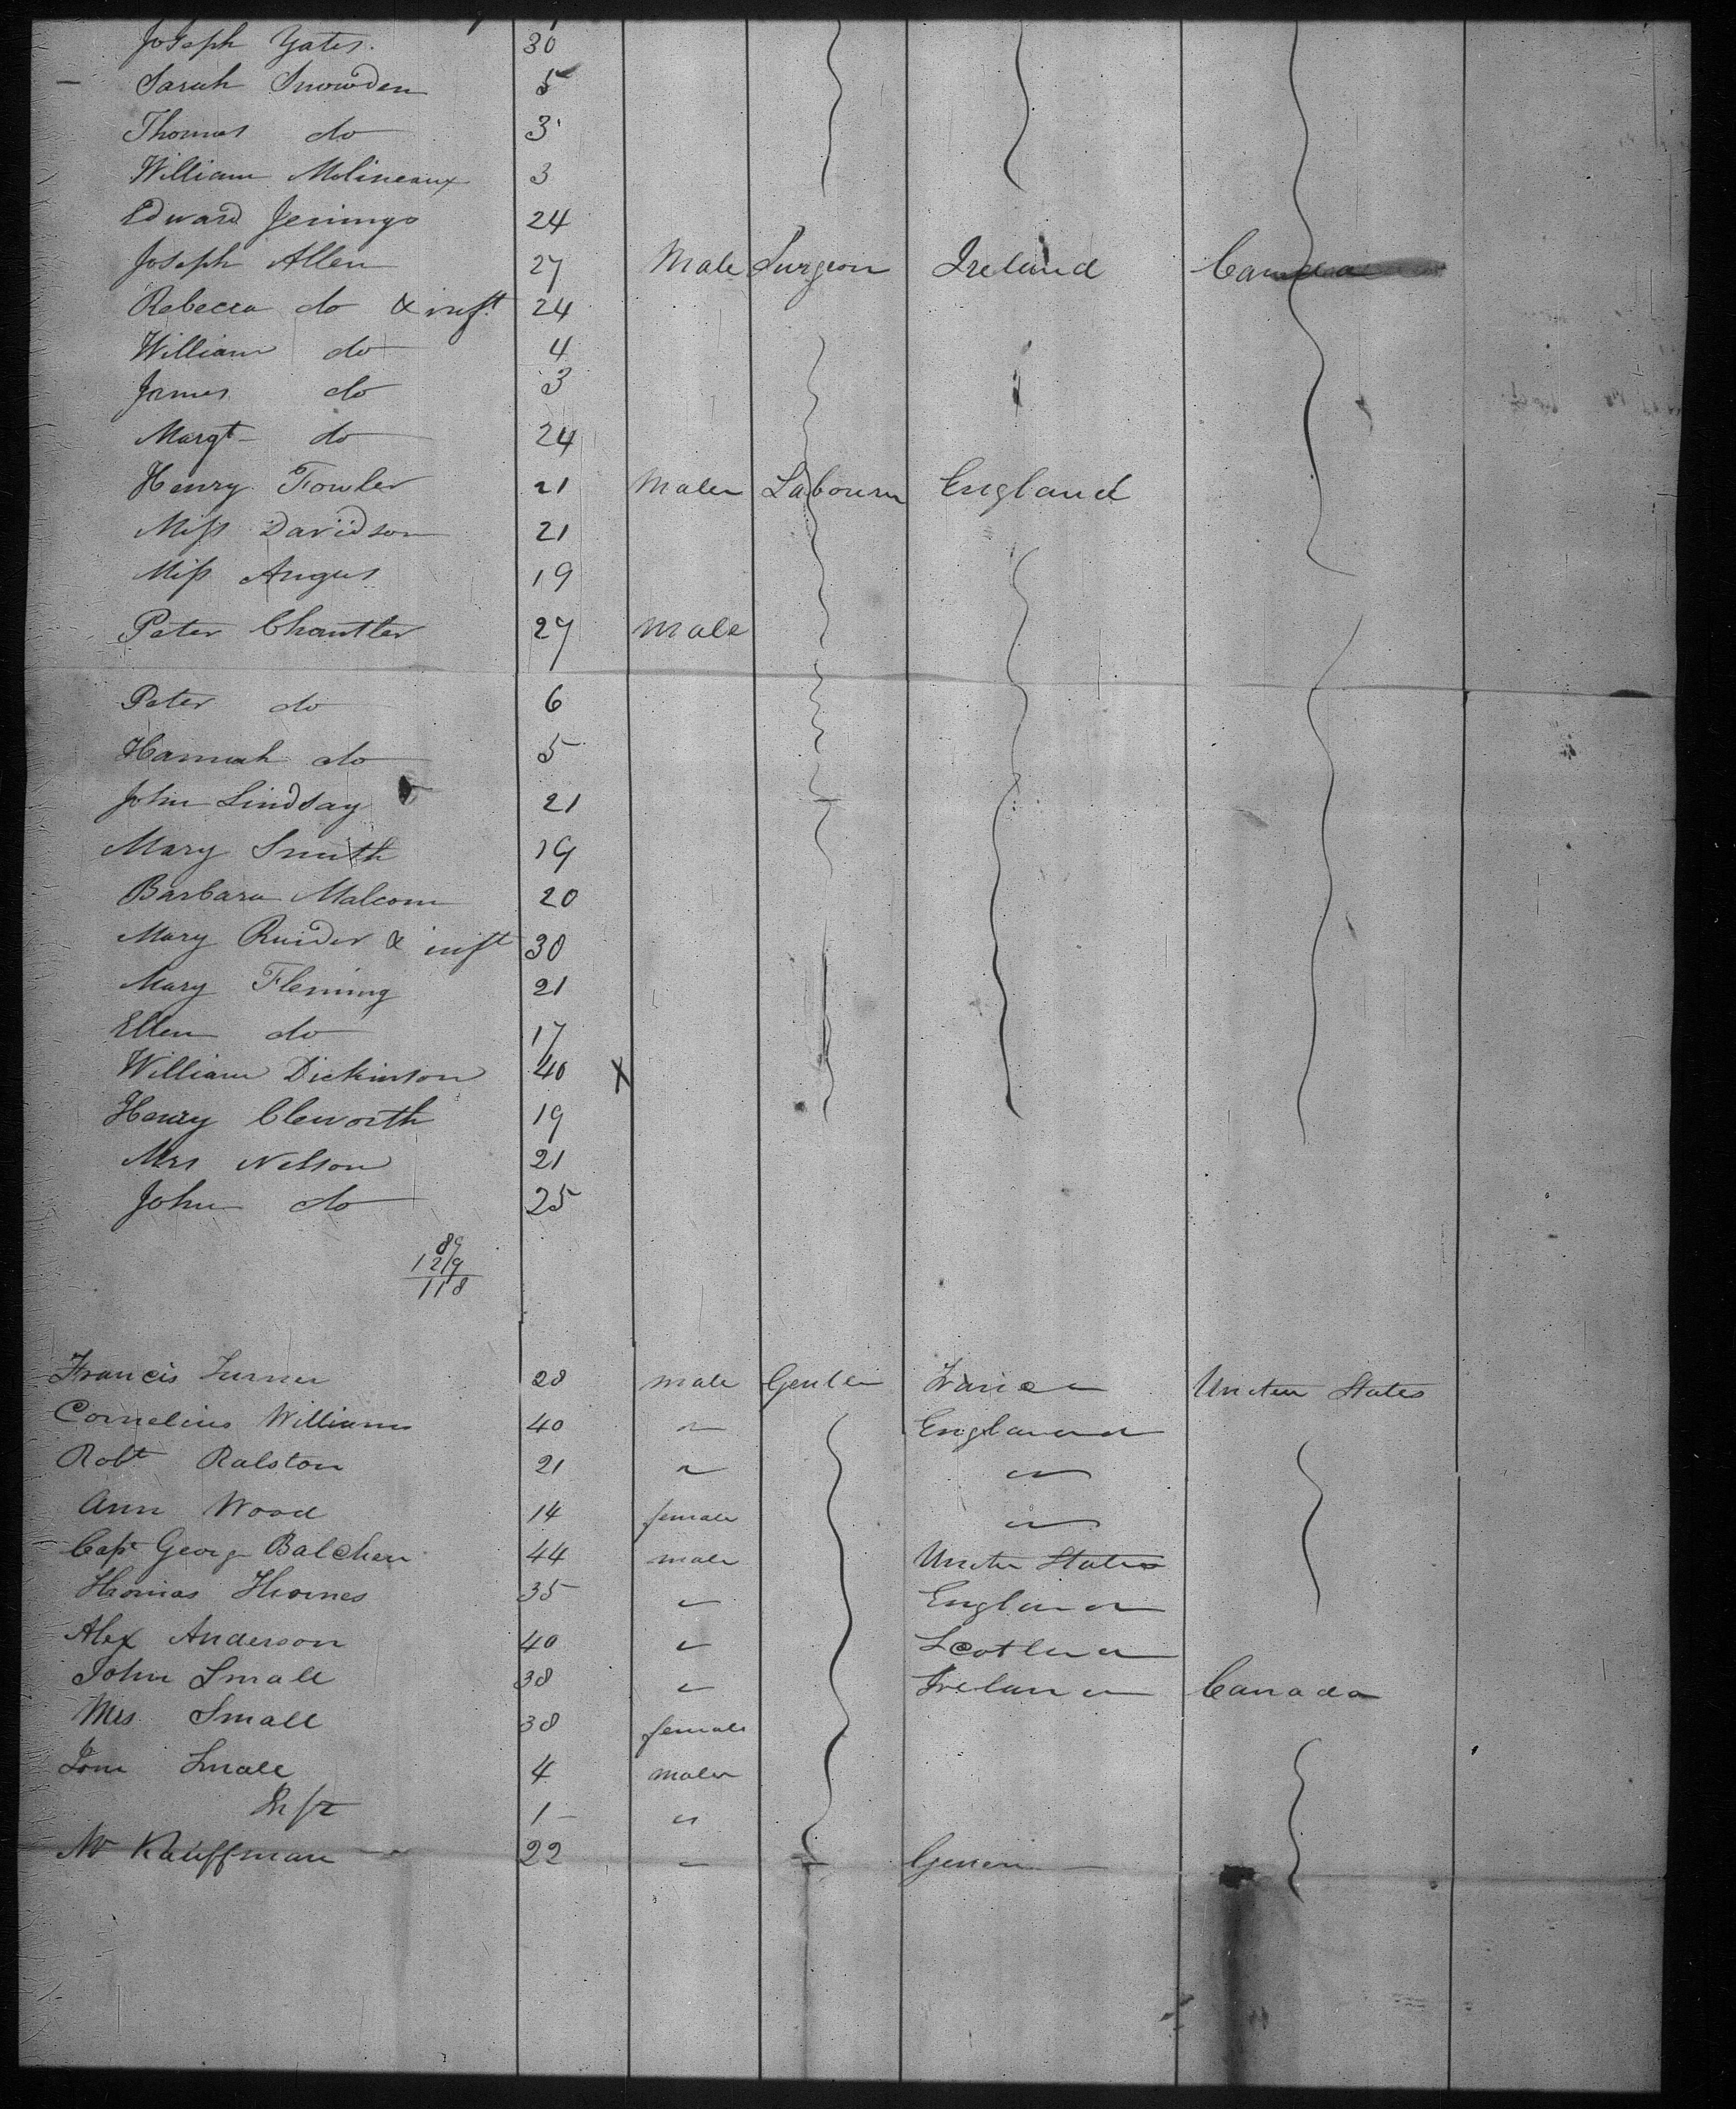 Joseph Yates. 30
Sarah Snowden 5
Thomas do 3
William Molineaux 3
Edward Jenings 24
Joseph Allen 27 Male Surgeon Ireland Canada
Rebecca do & inft 24
William do 4
James do 3
Margt do 24
Henry Fowler 21 Male Labourer England
Miss Davidson 21
Miss Angus 19
Peter Chantler 27 Male
Peter do 6
Hannah do 5
John Lindsay 21
Mary Smith 19
Barbara Malcom 20
Mary & inft 30
Mary Fleming 21
Ellen do 17
William Dickinson 40 X
Henry Cleworth 19
Mrs Nelson 21
John do 25
89
118
Francis Turner 28 male France United States
Cornelius Williams 40 " England
Robt Ralston 21 " "
Ann Wood 14 female "
Capt George Balchen 44 male United States
Thomas Thornes 35 " England
Alex Anderson 40 " Scotland
John Small 38 " Ireland Canada
Mrs Small 38 female
Small 4 male
Inft 1 "
Mr Kauffman 22 "